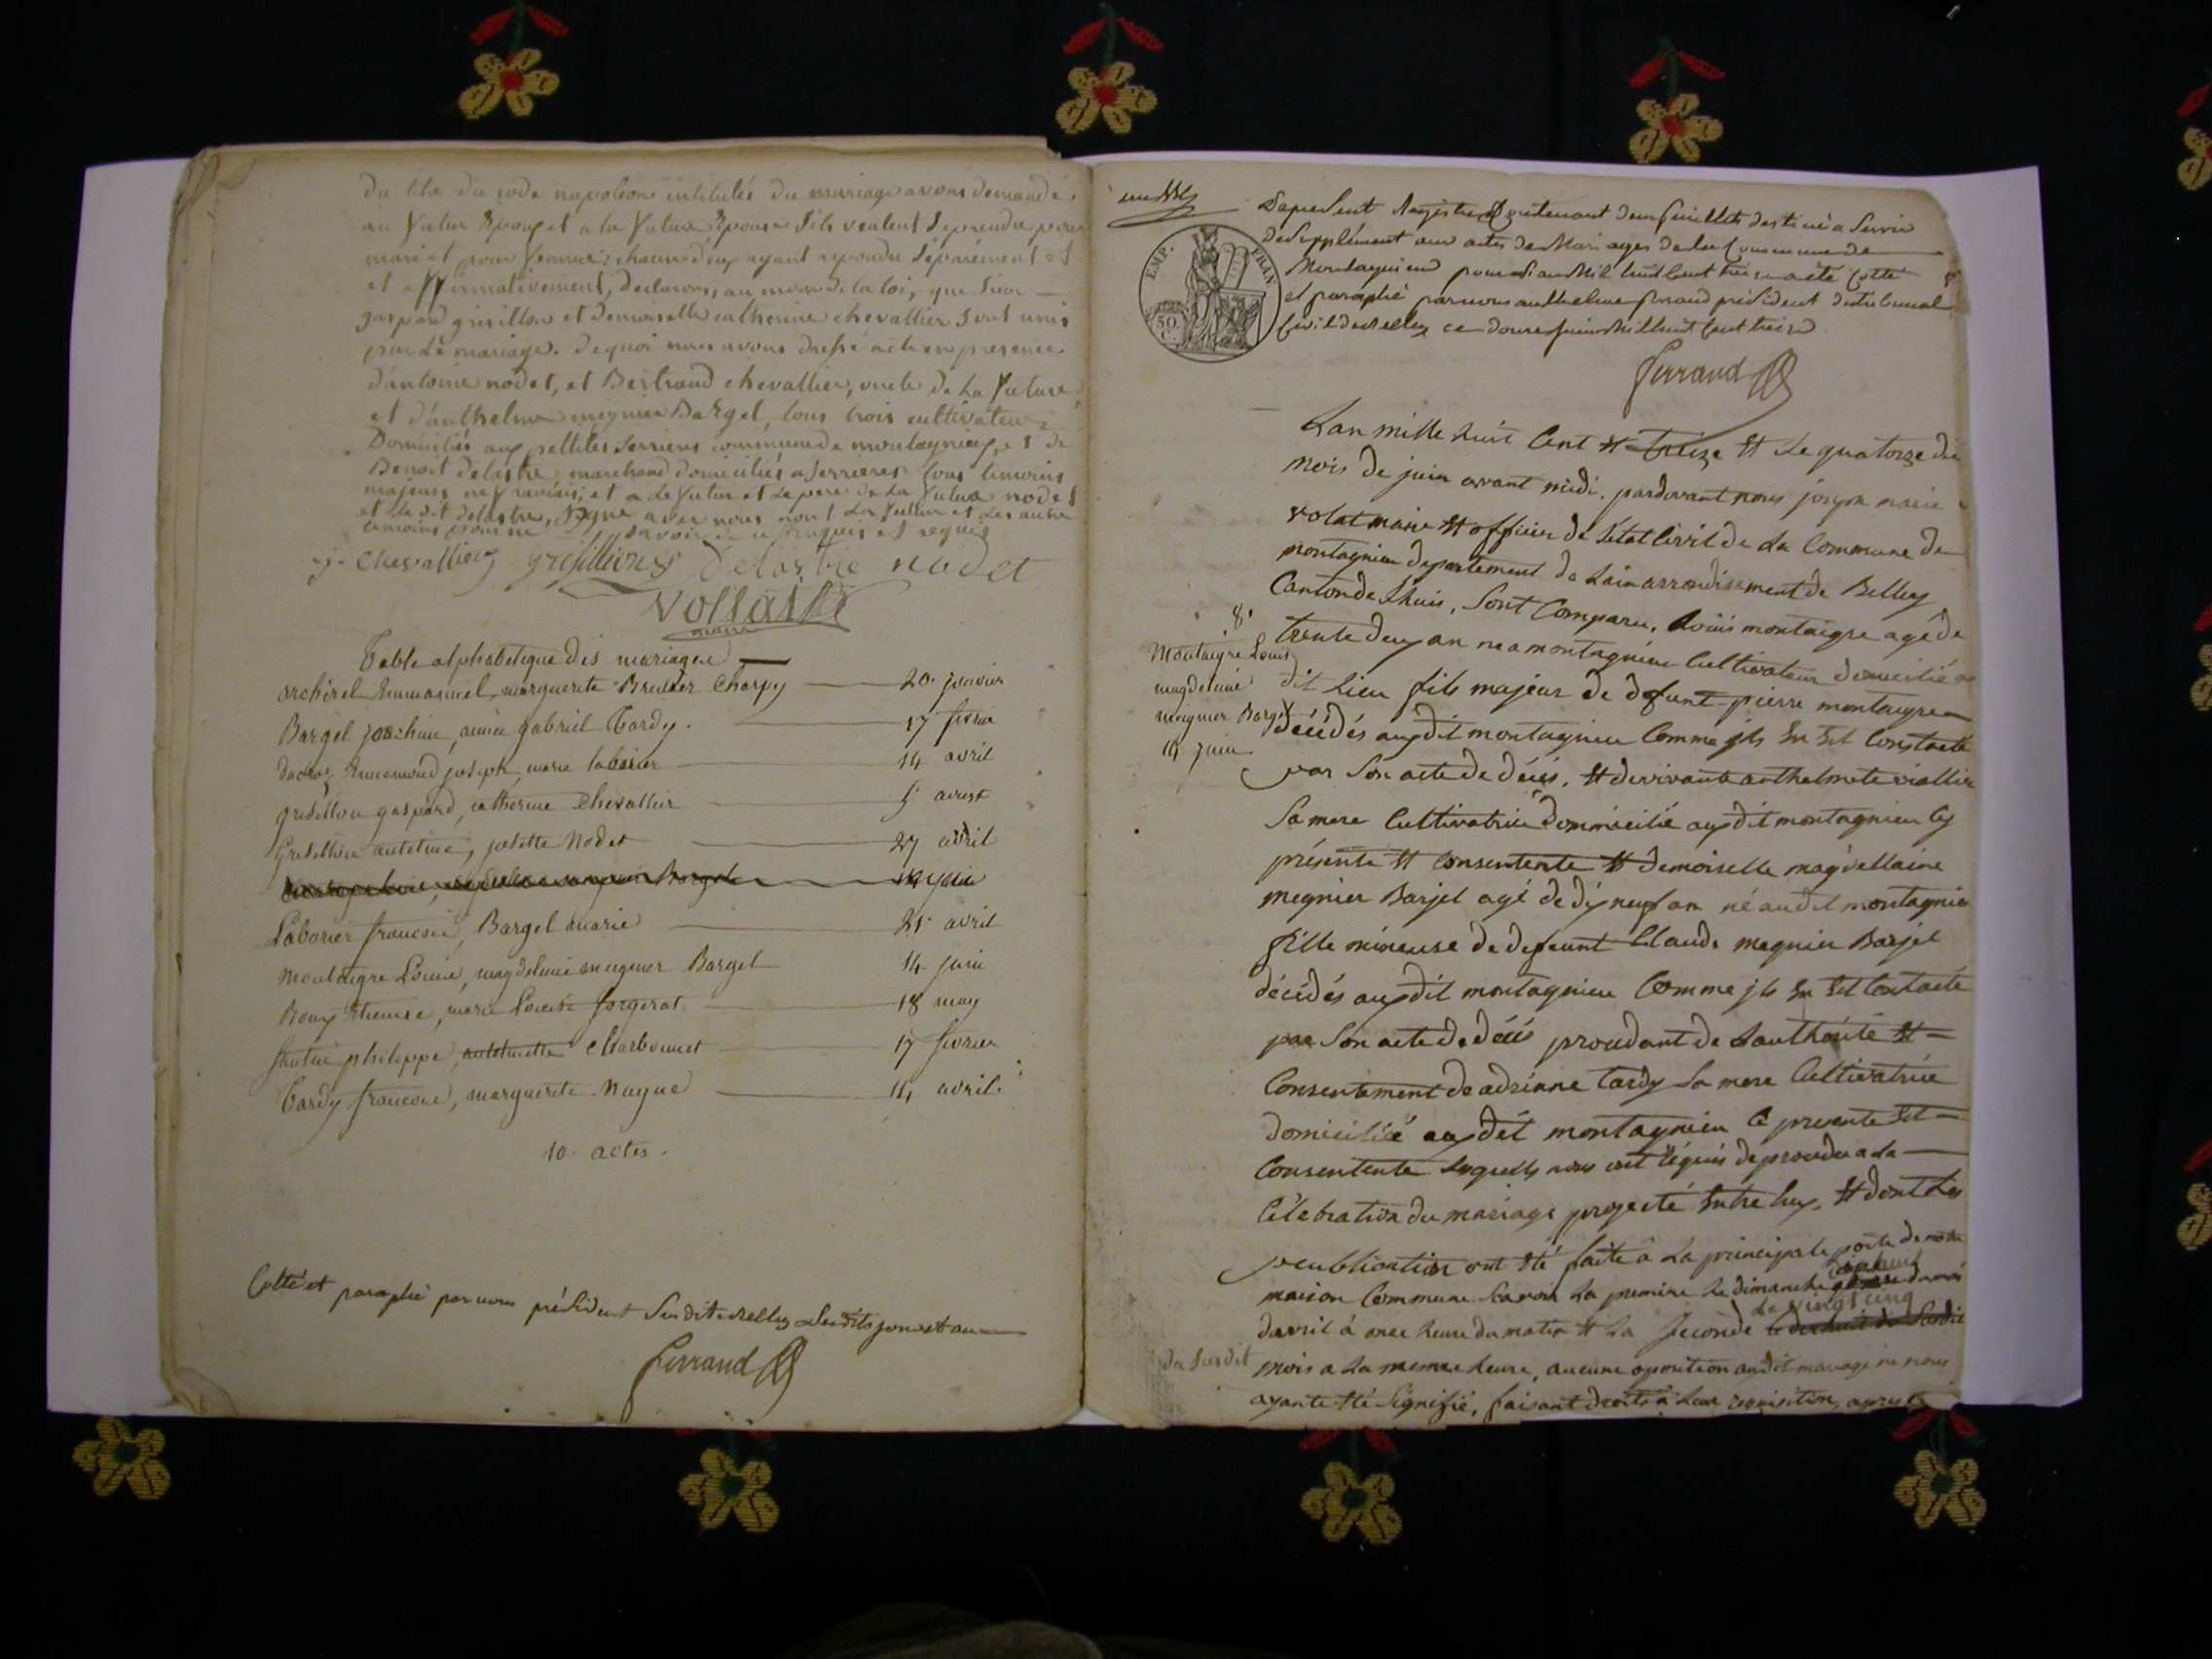 du titre du code napoleon intitulés du mariage avons demandé
au futur Epoux et a la future Epouse s'ils veulent se prendre pour
mari et pour femme; chacun d'eux ayant repondu séparément et
et affirmativement, declarons, au nom de la loi, que sieur
gaspard grisillon et demoiselle catherine chevallier sont unis
par le mariage. de quoi nous avons dressé acte en presence
d'antoine nodet, et Bertrand chevallier, oncle de la future,
et d'anthelme meynier Bargel, tous trois cultivateurs
Domiciliés aux pettites serrieres commune de montagnieux, et de
Benoit delastre marchand domiciliés a serrieres tous temoins
majeurs et a le futur et le pere de la future nodet
et le dit delastre, signé avec nous non la future et les autre
temoins pour ne savoir de ce enquis et requis
j. Chevallier gresillion Delastre nodet
Vollaist
maire
Table alphabetique des mariages
archirel Emmanuel, marguerite Brusser Charpy 20 janvier
Bargel joachim, aimée gabriel Tardy 17 fevrier
Ennemond joseph, marie laborier 14 avril
gresillon gaspard, catherine Chevallier 5 aoust
Gresillion antoine, josette Nodet 27 avril
14 juin
Laborier francois, Bargel marie 21 avril
Montaigre Louis, magdeleine meynier Bargel 14 juin
Rouy Etienne, marie Louise forgerat 18 may
philippe, antoinette Charbonnet 17 fevrier
Tardy francois, marguerite Nague 14 avril
10. actes.
Cotté et paraphé par nous président susdit a Belley les dits jour et an
Ferrand
Le present Registre Contenant deux feuillets destiné a servir
de Supplément aux actes de Mariages de la Commune de
Montagnieux pour l'an Mil huit Cent treize a été Cotté
et paraphé par nous anthelme ferrand président du tribunal
Civil de Belley ce douze juin Mil huit Cent treize
EMP. FRAN
50.
C.
Ferrand
Lan mille huit Cent Et treize Et Le quatorze du
mois de juin avant midi, pardevant nous joseph marie
volat maire Et officier de l'etat Civil de La Commune de
montagnieu departement de Lain arrondissement de Belley
Canton de Lhuis, Sont Comparu, Louis montaigre agé de
8.
Montaigre Louis
magdeleine
meynier Bargel
14 juin
trente deux an né a montagnieu Cultivateur domicilié au
dit Lieu fils majeur de defunt pierre montaigre
décédés audit montagnieu Comme jls En Est Constaté
par Son acte de décés, Et de vivante anthelmete viallier
Sa mere Cultivatrice domicilié audit montagnieu Cy
présente Et Consentente Et demoiselle magdellaine
megnier Barjel agé de dix neuf an né audit montagnieu
fille mineuse de defeunt Claude megnier Barjel
décédés audit montagnieu Comme jls En Est Contaté
par Son acte de décés procédant de Lauthorité Et
Consentement de adrianne tardy Sa mere Cultivatrice
domiciliée audit montagnieu Cy presente Et
Consentente Lesquels nous ont réquis de procéder a La
Célébration du mariage projecté Entre Eux, Et dont Les
peublication ont Eté faite a La principale porte de notre
maison Commune Scavoir La premiere Le dimanche du mois
davril à onze heure du matin Et La Seconde Le vingt cinq
du Susdit mois a La meme heure, aucune oposition audit mariage ne nous
ayante Eté Signifié, faisant droits a Leur requisition, apres